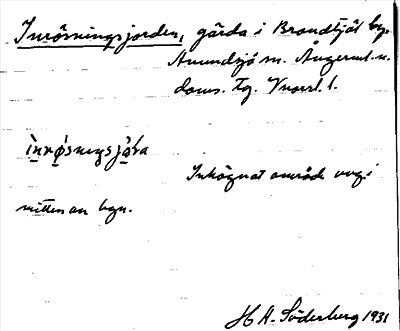 Inrösningsjorden, gärda i Brandtjäl by.
Anundsjö sn. Ångerml. n.
doms. tg. Vnorrl. l.
ìnrǿsnıŋsjǫ̀ɽa
Inhägnat område
mitten av byn.
H A. Söderberg 1931